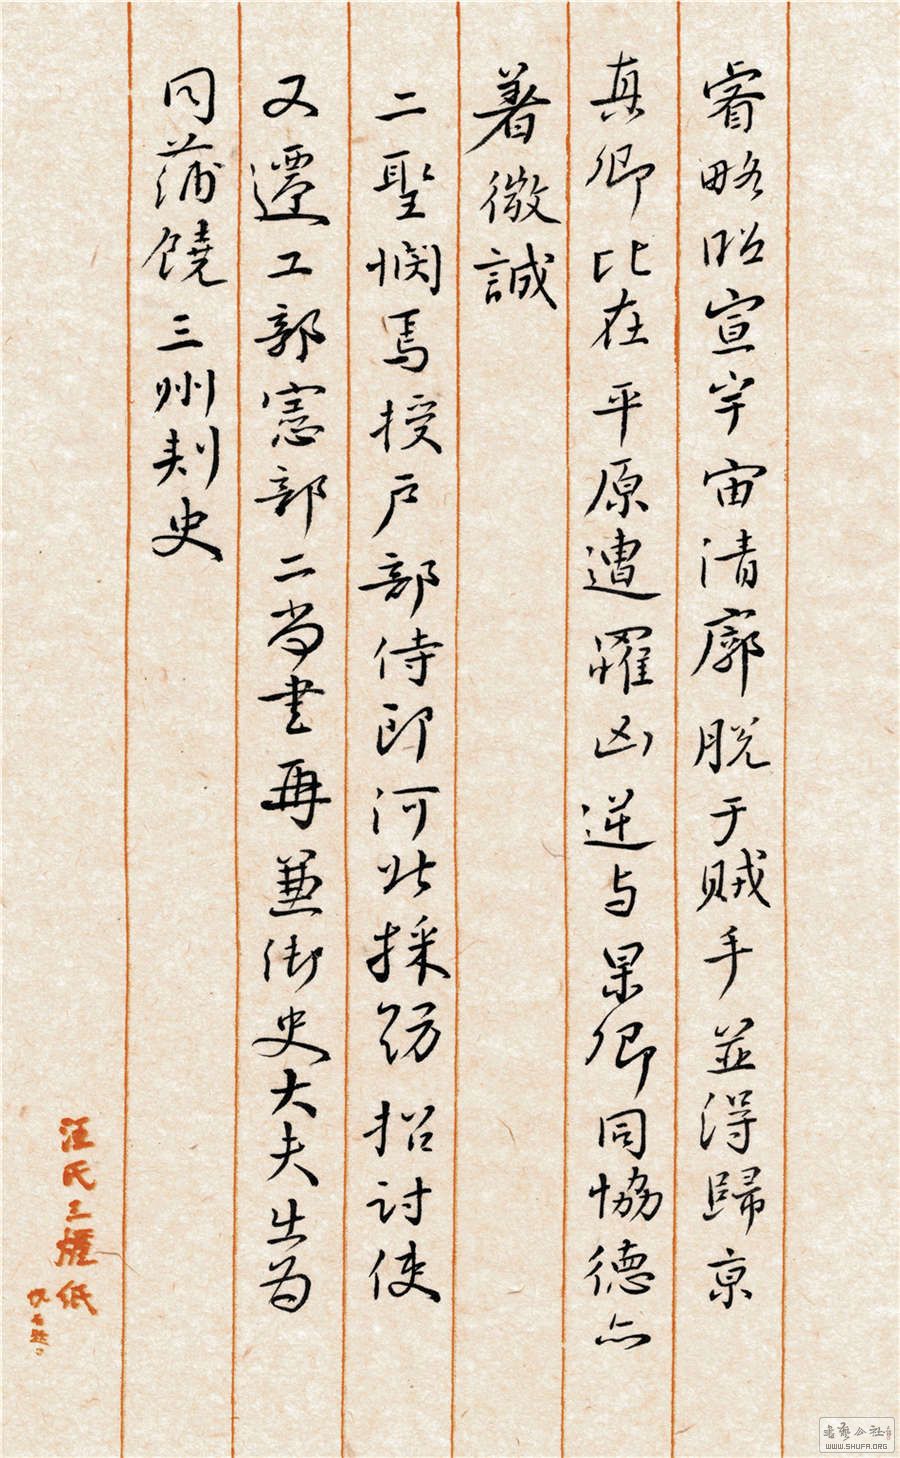 睿略昭宣宇宙清廓脱于賊手並得歸京
真卿比在平原遭罹凶逆与杲卿同協德亦
著微誠
二聖憫焉授戶部侍郎河北採訪招討使
又遷工部憲部二尚書再兼御史大夫出为
同蒲饒三州刺史
汪氏三癡紙
WWW.SHUFA.ORG